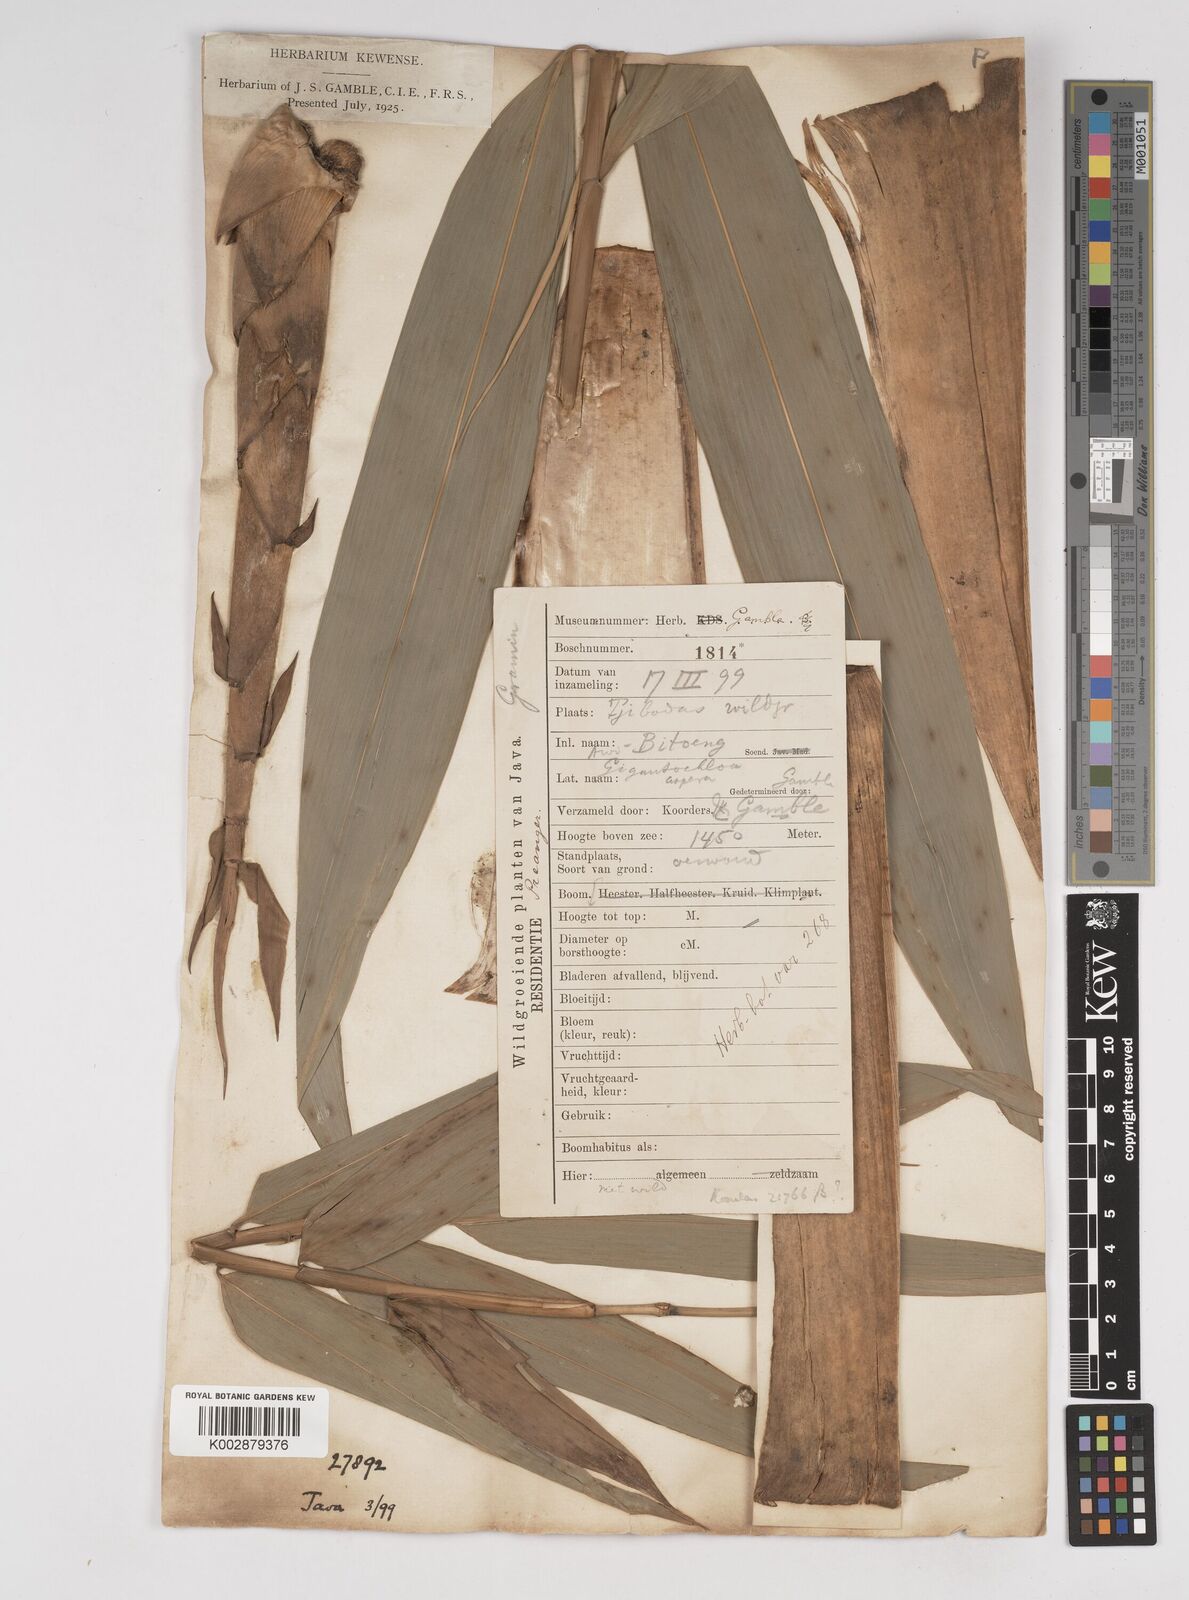 HERBARIUM KEWENSE.
Herbarium of J. S. GAMBLE, C.I.E., F.R.S.,
Presented July, 1925.
Gramin
Wildgroeiende planten van Java.
RESIDENTIE Preanger.
Museumnummer: Herb. KDS. Gamble.
Boschnummer. 1814*
Datum van
inzameling: 17 III 99
Plaats: Tjibodas wildgr
Inl. naam: Awi-Bitoeng Soend. Jav. Mad.
Lat. naam: Gigantochloa
aspera Gamble
Gedetermineerd door:
Verzameld door: Koorders. & Gamble
Hoogte boven zee: 1450 Meter.
Standplaats,
Soort van grond:
Boom. Heester. Halfheester. Kruid. Klimplant.
Hoogte tot top: M.
Diameter op
borsthoogte: cM.
Bladeren afvallend, blijvend.
Bloeitijd:
Bloem
(kleur, reuk):
Vruchttijd:
Vruchtgeaard-
heid, kleur:
Gebruik:
Boomhabitus als:
Hier: algemeen zeldzaam
niet wild
Herb. bot. var 268
21766 β?
ROYAL BOTANIC GARDENS KEW
K002879376
27892
Java 3/99
centimetres
inches
M001051
Don Williams
Royal Botanic Gardens
Kew
copyright reserved
0 1 2 3 4 5 6 7 8 9 10
cm